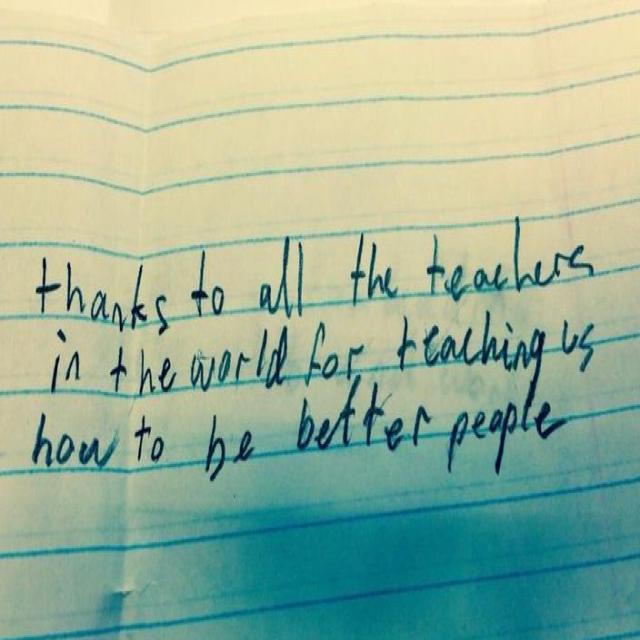 thanks to all the teachers
in the world for teaching us
how to be better people